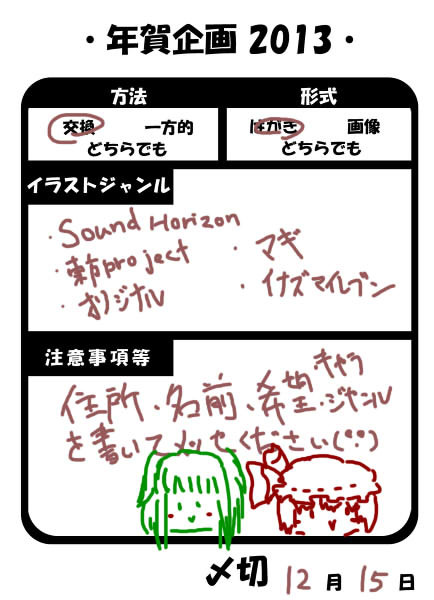 ・年賀企画 2013・
方法 形式
交換 一方的 はがき 画像
どちらでも どちらでも
イラストジャンル
・Sound Horizon
・東方project
・オリジナル
・マギ
・イナズマイレブン
注意事項等
住所・名前・希望キャラ・ジャンル
を書いてメッセください(°°)
〆切 12月15日